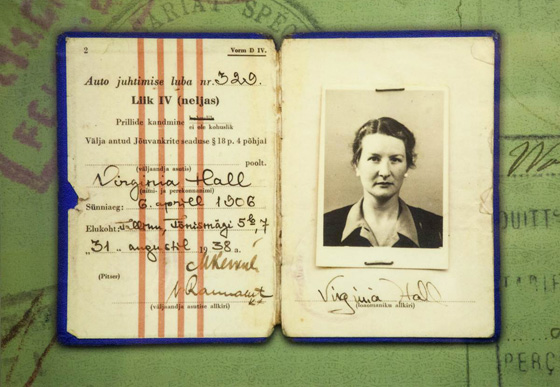 2
Vorm D IV.
Auto juhtimise luba nr. 329.
Liik IV (neljas)
Prillide kandmine
ei ole kohuslik
Välja antud Jõuvankrite seaduse § 18 p. 4 põhjal
poolt.
(väljaandja asutis)
Virginia Hall
(nimi- ja perekonnanimi)
Sünniaeg: 6. aprill 1906
Elukoht: Tallinn, Tõnismägi
„31„ augustil 1938 a.
(Pitser)
(väljaandja asutise allkiri)
Virginia Hall
(loaomaniku allkiri)
QUITT
TARIF
PERÇ